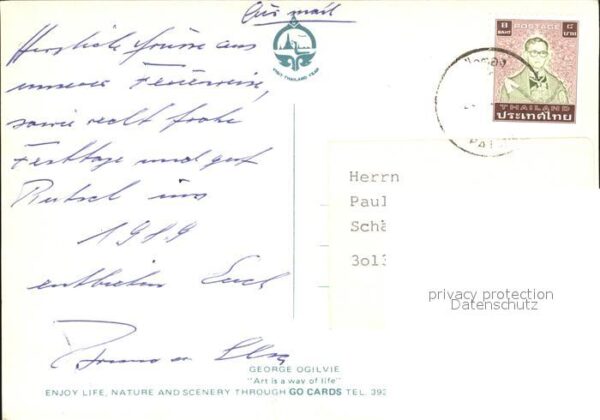 Air mail
Herzliche Grüsse aus
unserer Ferienreise,
sowie recht frohe
Festtage und gut
Rutsch ins
1989
entbieten Euch
VISIT THAILAND YEAR
8 POSTAGE ๘
BAHT บาท
THAILAND
ประเทศไทย
Herrn
Paul
Schä
3o13
privacy protection
Datenschutz
GEORGE OGILVIE
"Art is a way of life"
ENJOY LIFE, NATURE AND SCENERY THROUGH GO CARDS TEL. 392